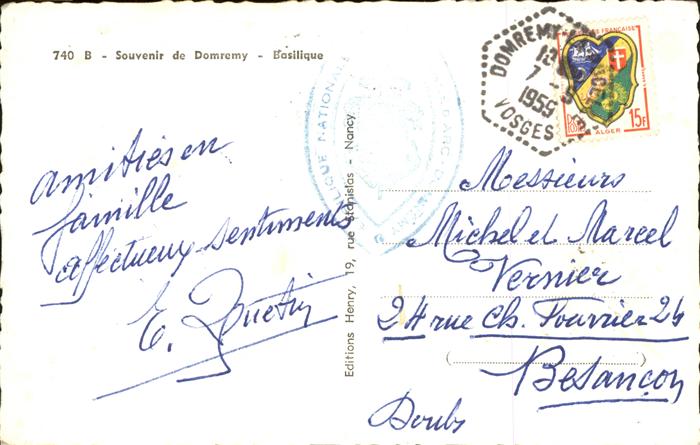 740 B - Souvenir de Domremy - Basilique
amitiés en
famille
affectueux sentiments
Editions Henry, 19, rue Stanislas - Nancy
BASILIQUE NATIONALE
JEANNE D'ARC
DOMREMY
7 - 9
1959
VOSGES
RÉPUBLIQUE FRANÇAISE
POSTES
ALGER
15F
Messieurs
Michel et Marcel
Vernier
24 rue Ch. Fourrier 24
Besançon
Doubs